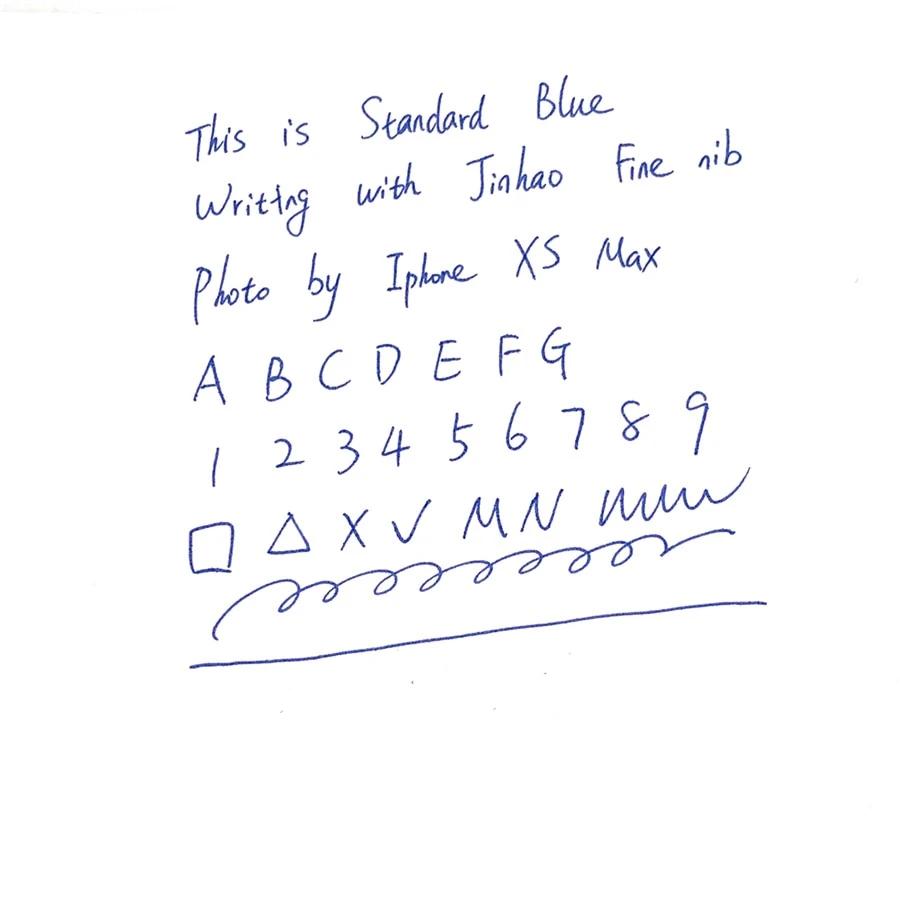 This is Standard Blue
Writing with Jinhao Fine nib
Photo by Iphone XS Max
A B C D E F G
1 2 3 4 5 6 7 8 9
□ △ X √ M N